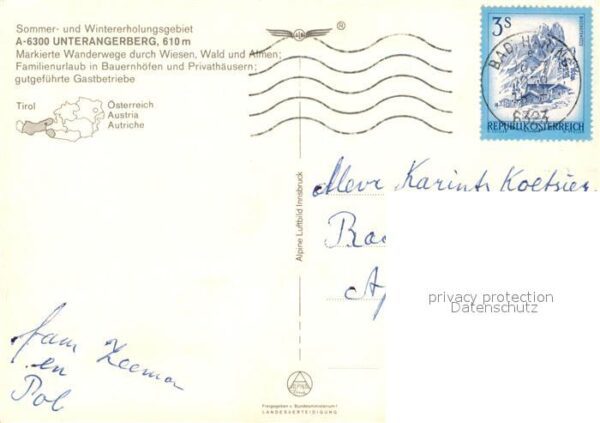 Sommer- und Wintererholungsgebiet
A-6300 UNTERANGERBERG, 610 m
Markierte Wanderwege durch Wiesen, Wald und Almen;
Familienurlaub in Bauernhöfen und Privathäusern;
gutgeführte Gastbetriebe
Tirol
Österreich
Austria
Autriche
3 S
REPUBLIK ÖSTERREICH
BAD HÄRING
6323
Alpine Luftbild Innsbruck
Mevr Karints Koetsier
privacy protection
Datenschutz
fam Zeeman
en
Pol
Freigegeben v. Bundesministerium f.
LANDESVERTEIDIGUNG